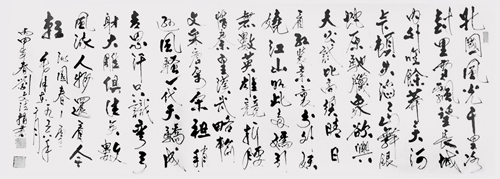 北國風光千里冰
封萬里雪飄望長城
內外唯餘莽莽大河
上下頓失滔滔山舞銀
蛇原馳蠟象欲與
天公試比高須晴日
看紅裝素裹分外妖
嬈江山如此多嬌引
無數英雄競折腰
惜秦皇漢武略輸
文采唐宗宋祖稍
遜風騷一代天驕成
吉思汗只識彎弓
射大雕俱往矣數
風流人物還看今
朝
沁園春
毛澤東